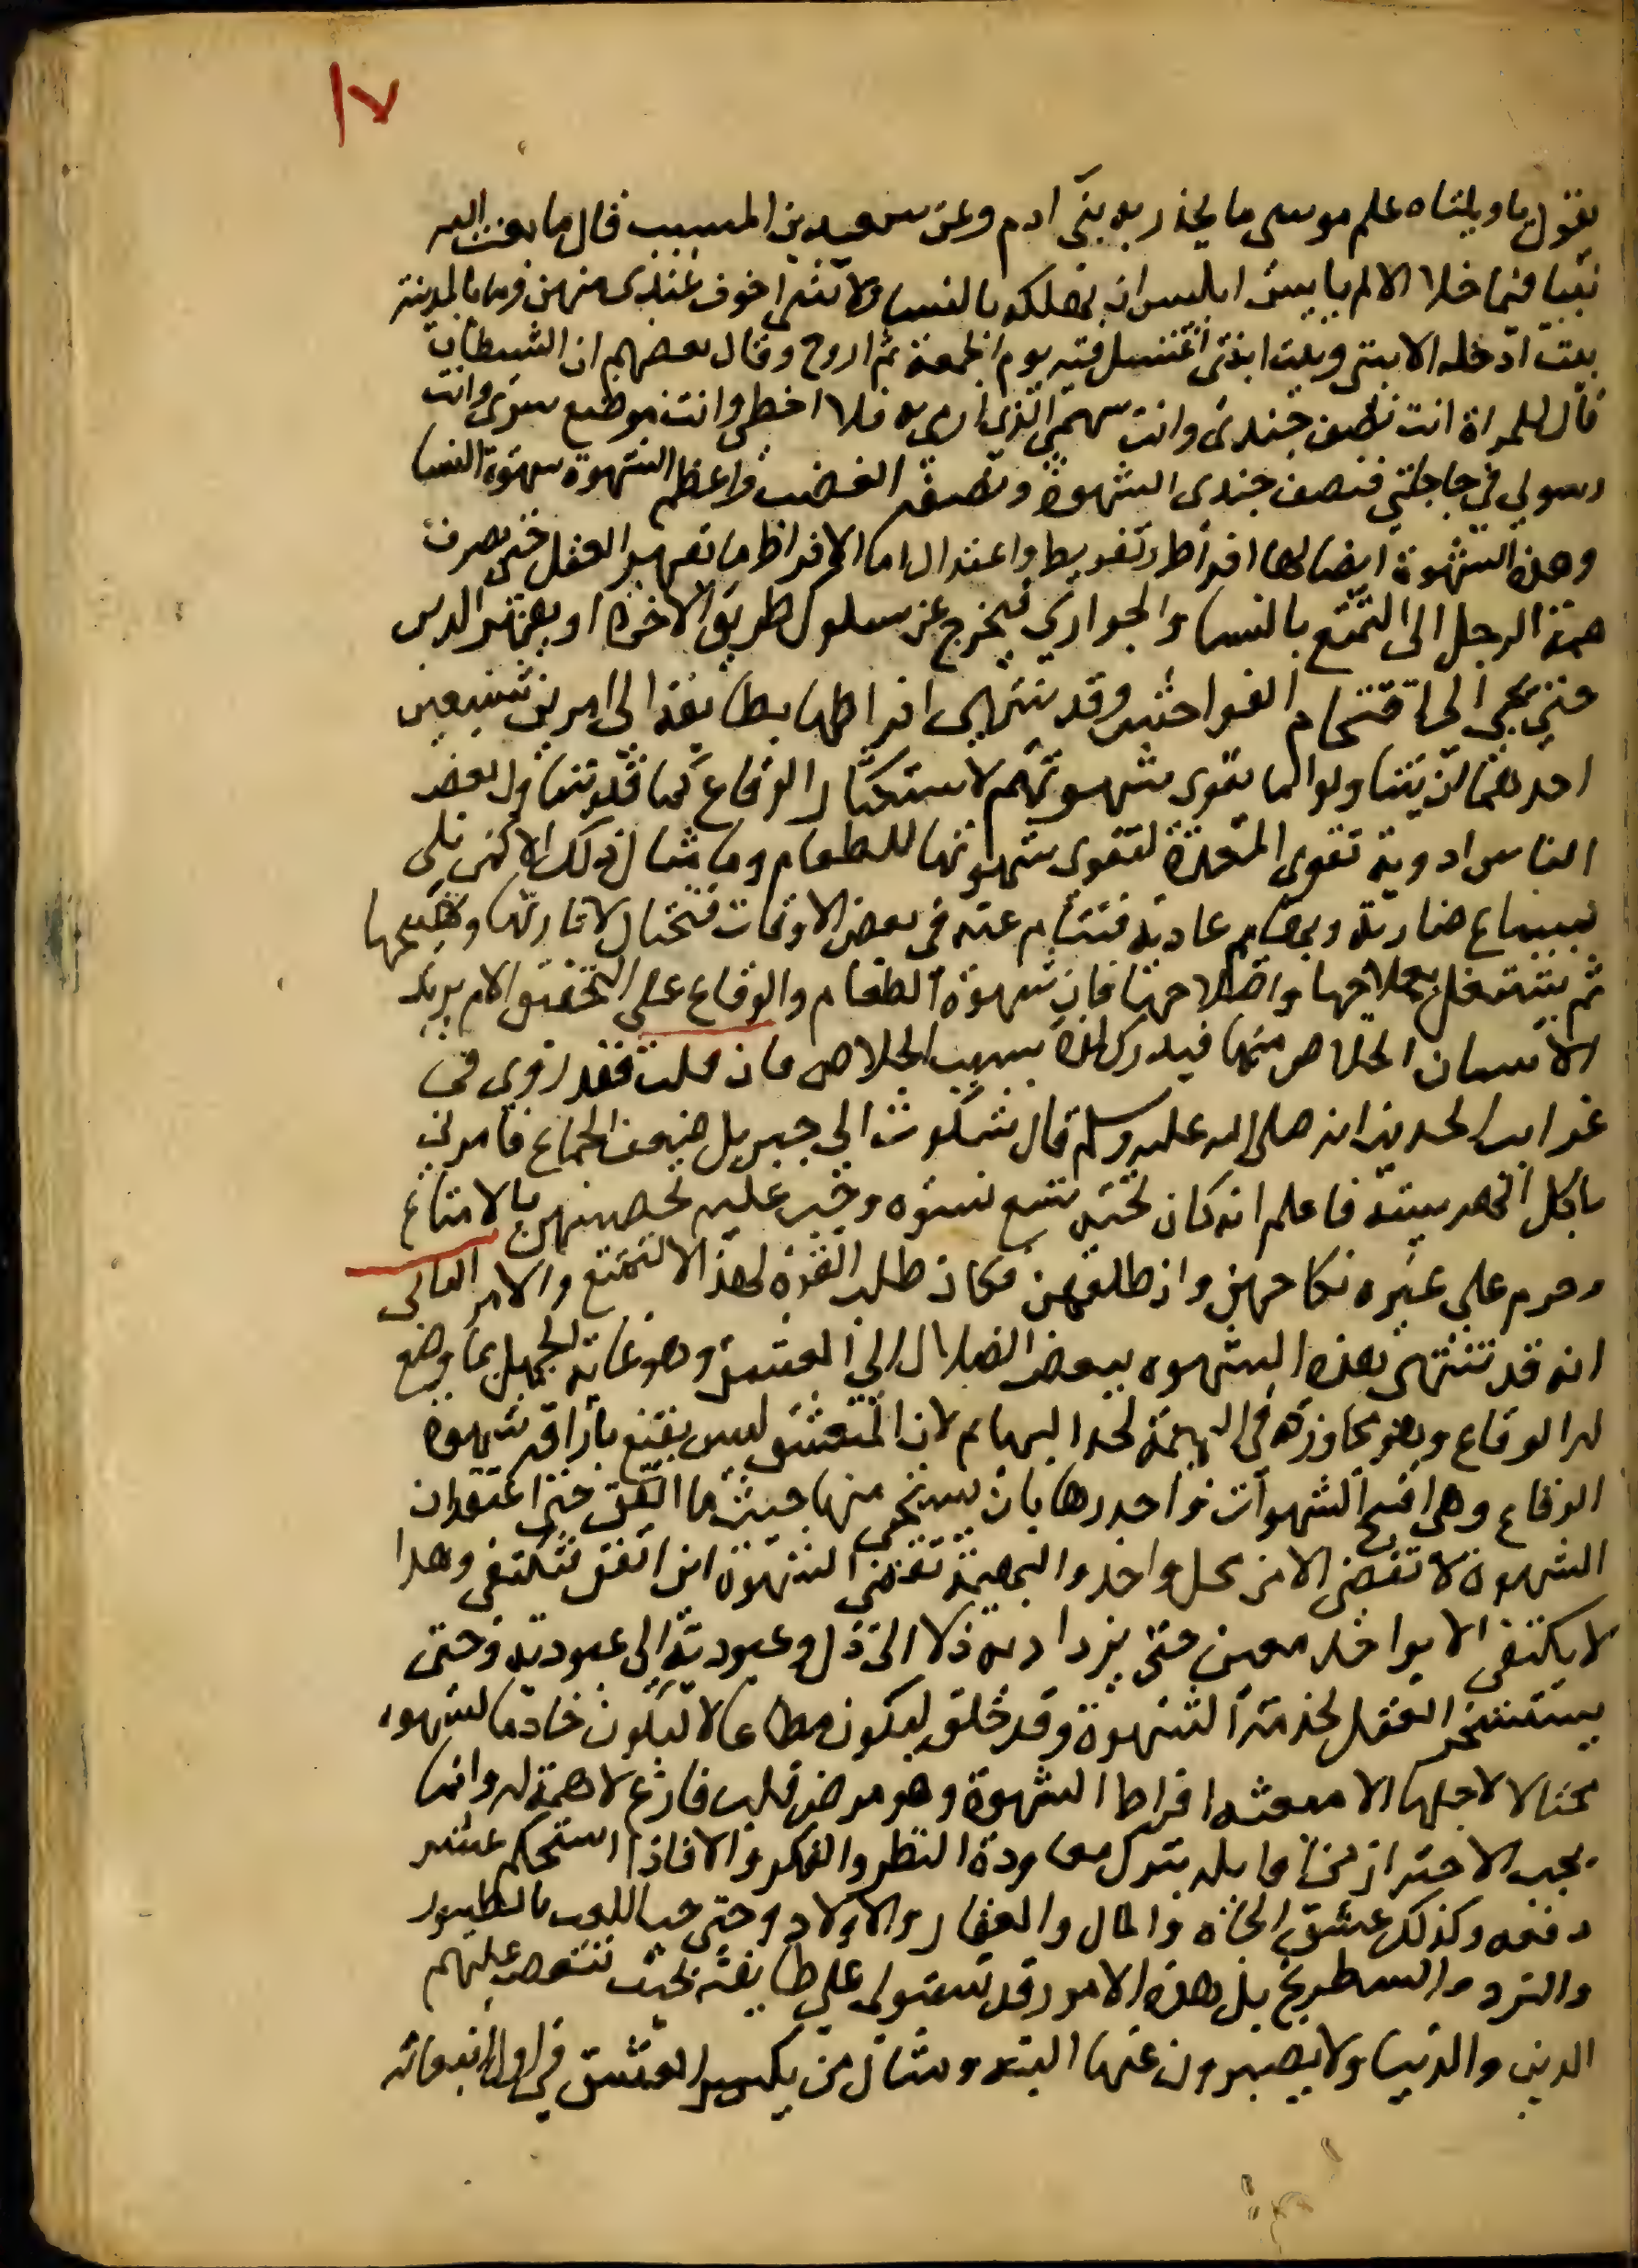 ١٧
يقول يا ويلتاه علم موسى ما يحذر به بني ادم وعن سعيد بن المسيب قال ما بعث الله
نبيا فيما خلا الا لم ييأس ابليس ان يهلكه بالنساء ولا شي اخوف عندي منهن وما بالمدينة
بيت ادخله الا بيتي وبيت ابنتي اغتسل فيه يوم الجمعة ثم اروح وقال بعضهم ان الشيطان
قال للمراة انت نصف جندي وانت سهمي الذي ارمي به فلا اخطي وانت موضع سري وانت
رسولي في حاجتي فنصف جندي الشهوة ونصفه الغضب واعظم الشهوة شهوة النسا
وهذه الشهوة ايضا لها افراط وتفريط واعتدال اما الافراط ما تقهر العقل حتى يصرف
همة الرجل الى التمتع بالنسا والجواري فيخرج عن سلوك طريق الاخرة او يقهر الدين
حتى يجر الى اقتحام الفواحش وقد ينتهي افراطها بطائفة الى امرين شنيعين
احدهما ان يتناولوا ما يقوي شهوتهم لاستكثار الوقاع كما قد يتناول بعض
الناس ادوية تقوي المعدة لتقوى شهوتها للطعام وما مثال ذلك الا كمن بلي
بسباع ضارية وبهايم عادية فتنام عنه في بعض الاوقات فيحتال لاثارتها وتهييجها
ثم يشتغل بعلاجها واصلاحها فان شهوة الطعام والوقاع على التحقيق الام يريد
الانسان الخلاص منها فيدرك لذة بسبب الخلاص فان قلت فقد روي في
غرايب الحديث انه صلى الله عليه وسلم قال شكوت الى جبريل ضعف الجماع فامرني
باكل الهريسة فاعلم انه كان تحته تسع نسوه ووجب عليه تحصينهن بالامتاع
وحرم على غيره نكاحهن وان طلقهن فكان طلب القوة لهذا لا للتمتع والامر الثاني
انه قد تنتهي بهذه الشهوه ببعض الضلال الى العشق وهو غاية الجهل بما وضع
له الوقاع وهو مجاوزة في البهيمة لحد البهايم لان المتعشق ليس يقنع باراقة شهوة
الوقاع وهي اقبح الشهوات واجدرها بان يستحي منها حيث ما اتفق حتى اعتقد ان
الشهوة لا تقضى الا من محل واحد والبهيمة تقضي الشهوة اين اتفق فتكتفي وهذا
لا يكتفي الا بواحد معين حتى يزداد به ذلا الى ذل وعبودية الى عبودية وحتى
يستسخر العقل لخدمة الشهوة وقد خلق ليكون مطاعا لا ليكون خادما لشهوه
محتالا لاجلها الا سعة افراط الشهوة وهو مرض قلب فارغ لا همة له وانما
يجب الاحتراز من اوايله بترك معاودة النظر والفكر والا فاذا استحكم عسر
دفعه وكذلك عشق الجاه والمال والعقار والاولاد وحتى حب اللعب بالطيور
والنرد والشطرنج بل هذه الامور قد تستولي على طايفة بحيث تنقص عليهم
الدين والدنيا ولا يصبرون عنها البته ومثال من يكسر العشق في اول انبعاثه